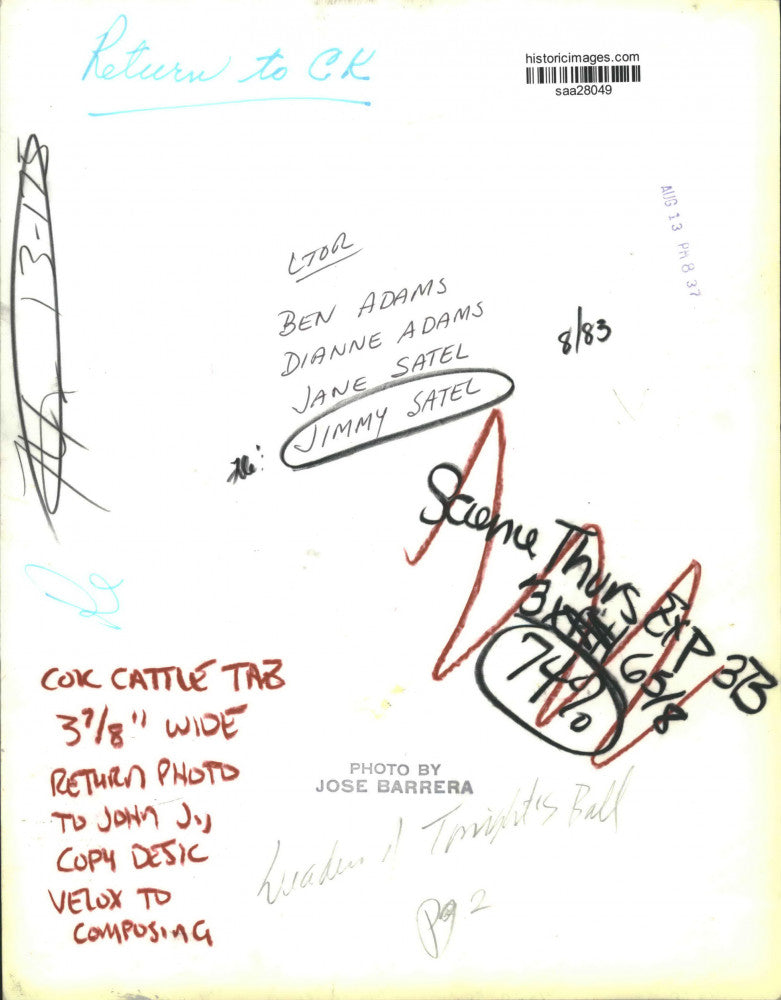 Return to CK
historicimages.com
saa28049
AUG 13 PM 8 37
13-17
LTOR
BEN ADAMS
DIANNE ADAMS
JANE SATEL
JIMMY SATEL
8/83
file:
Science Thurs EXP 3B
3x
65/8
74%
COK CATTLE TAB
3 7/8" WIDE
RETURN PHOTO
TO JOHN J.,
COPY DESK
VELOX TO
COMPOSING
PHOTO BY
JOSE BARRERA
Tonight's Ball
Pg 2